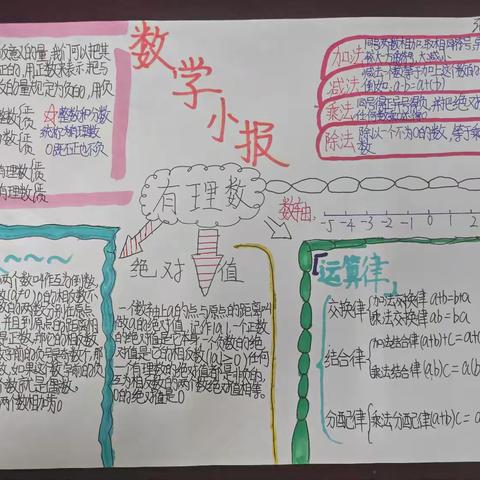 数学小报
有理数
放意义的量,我们可以把其
正的,用正数来表示,把与
的量规定为负的,用负
整数和分数
统称为有理数
0既不正也不负
有理数
有理数
加法
同号两数相加,取相同符号,
减法
减去一个数等于加上这个数的
例如,a-b=a+(-b)
乘法
同号得正,异号得负,并把绝对
任何数
除法
除以一个不为0的数,等于乘
数.
数轴:
-5 -4 -3 -2 -1 0 1 2
两个数叫作互为倒数,
0的相反数不
的两数分别在原点
并且到原点的距离相
正数,那它的相反数
数字前的负号是奇数个,那
数,如果这个数字前的负
个数就是偶数。
两个数相加为0
绝对值
一个数轴上a的点与原点的距离叫
做a的绝对值,记作|a|,一个正数
的绝对值是它本身,一个负数的绝
对值是它的相反数(|a|≥0)任何
一个有理数的绝对值都是非负的,
互为相反数的两个数绝对值相等。
0的绝对值是0
「运算律」
交换律
加法交换律a+b=b+a
乘法交换律ab=ba
结合律
加法结合律(a+b)+c=a+(
乘法结合律(a,b)c=a(b
分配律
乘法分配律(a+b)c=a